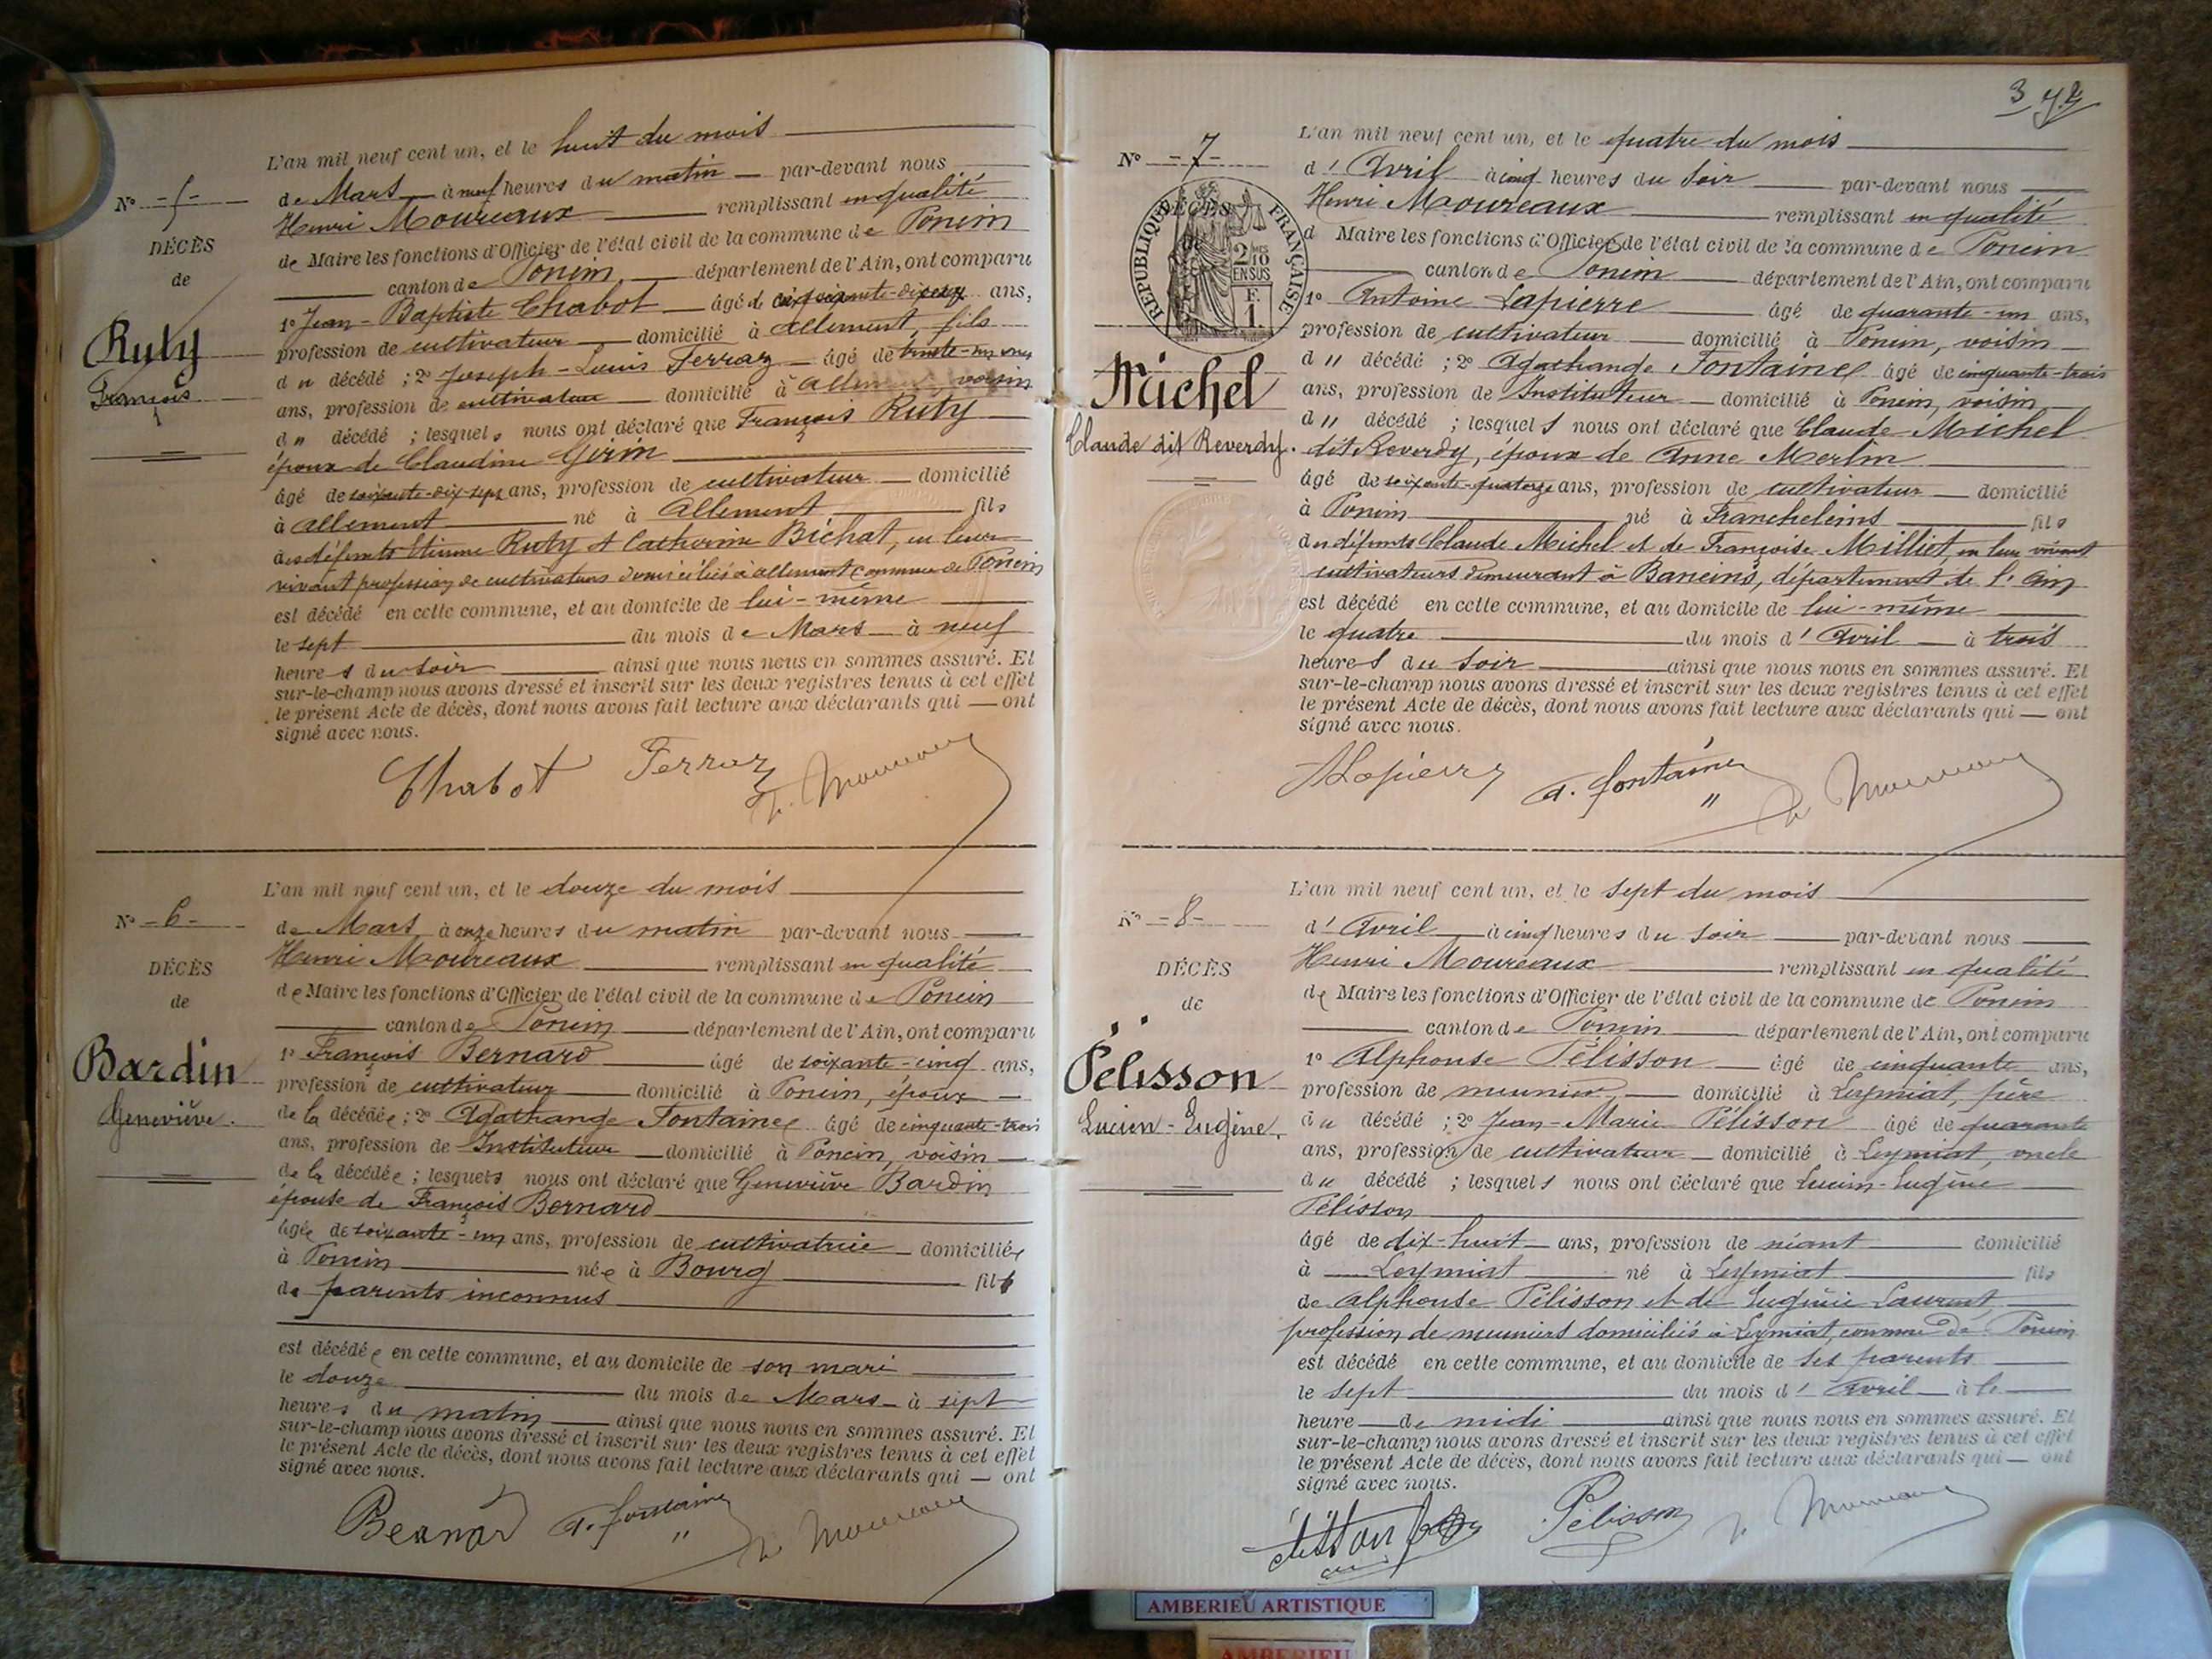 L'an mil neuf cent un, et le huit du mois
N° -5-
de Mars à neuf heures du matin par-devant nous
Henri Moureaux remplissant en qualité
DÉCÈS
de Maire les fonctions d'Officier de l'état civil de la commune de Poncin
de
canton de Poncin département de l'Ain, ont comparu
Ruty
François
1° Jean-Baptiste Chabot âgé de ans,
profession de cultivateur domicilié à Allement, fils
du décédé ; 2° Joseph-Louis Ferraz âgé de trente-un
ans, profession de cultivateur domicilié à Allement, voisin
d " décédé ; lesquels nous ont déclaré que François Ruty
époux de Claudine Girin
âgé de soixante-dix-sept ans, profession de cultivateur domicilié
à Allement né à Allement fils
des défunts Etienne Ruty et Catherine Bichat, en leur
vivant profession de cultivateurs domiciliés à Allement commune de Poncin
est décédé en cette commune, et au domicile de lui-même
le sept du mois de Mars à neuf
heures du soir ainsi que nous nous en sommes assuré. Et
sur-le-champ nous avons dressé et inscrit sur les deux registres tenus à cet effet
le présent Acte de décès, dont nous avons fait lecture aux déclarants qui — ont
signé avec nous.
Chabot Ferraz H. Moureaux
L'an mil neuf cent un, et le douze du mois
N° -6-
de Mars à onze heures du matin par-devant nous
Henri Moureaux remplissant en qualité
DÉCÈS
de Maire les fonctions d'Officier de l'état civil de la commune de Poncin
de
canton de Poncin département de l'Ain, ont comparu
Bardin
Geneviève.
1° François Bernard âgé de soixante-cinq ans,
profession de cultivateur domicilié à Poncin, époux
de la décédée ; 2° Agathange Fontaine âgé de cinquante-trois
ans, profession de Instituteur domicilié à Poncin, voisin
de la décédée ; lesquels nous ont déclaré que Geneviève Bardin
épouse de François Bernard
âgée de soixante-un ans, profession de cultivatrice domiciliée
à Poncin née à Bourg fil
de parents inconnus
est décédée en cette commune, et au domicile de son mari
le douze du mois de Mars à sept
heures du matin ainsi que nous nous en sommes assuré. Et
sur-le-champ nous avons dressé et inscrit sur les deux registres tenus à cet effet
le présent Acte de décès, dont nous avons fait lecture aux déclarants qui — ont
signé avec nous.
Bernard A. Fontaine H. Moureaux
L'an mil neuf cent un, et le quatre du mois
N° -7-
d' Avril à cinq heures du soir par-devant nous
Henri Moureaux remplissant en qualité
RÉPUBLIQUE FRANÇAISE
DÉCÈS
2/10
EN SUS
F.
1.
d Maire les fonctions d'Officier de l'état civil de la commune de Poncin
canton de Poncin département de l'Ain, ont comparu
1° Antoine Lapierre âgé de quarante-un ans,
profession de cultivateur domicilié à Poncin, voisin
Michel
Claude dit Reverdy.
d " décédé ; 2° Agathange Fontaine âgé de cinquante-trois
ans, profession de Instituteur domicilié à Poncin, voisin
d " décédé ; lesquels nous ont déclaré que Claude Michel
dit Reverdy, époux de Anne Merlin
âgé de soixante-quatorze ans, profession de cultivateur domicilié
à Poncin né à Francheleins fils
des défunts Claude Michel et de Françoise Milliet, en leur vivant
cultivateurs demeurant à Baneins, département de l'Ain
est décédé en cette commune, et au domicile de lui-même
le quatre du mois d' Avril à trois
heures du soir ainsi que nous nous en sommes assuré. Et
sur-le-champ nous avons dressé et inscrit sur les deux registres tenus à cet effet
le présent Acte de décès, dont nous avons fait lecture aux déclarants qui — ont
signé avec nous.
ALapierre A. Fontaine H. Moureaux
L'an mil neuf cent un, et le sept du mois
N° -8-
d' Avril à cinq heures du soir par-devant nous
Henri Moureaux remplissant en qualité
DÉCÈS
de Maire les fonctions d'Officier de l'état civil de la commune de Poncin
de
canton de Poncin département de l'Ain, ont comparu
Pélisson
Lucien-Eugène.
1° Alphonse Pélisson âgé de cinquante ans,
profession de meunier domicilié à Leymiat, père
du décédé ; 2° Jean-Marie Pélisson âgé de quarante
ans, profession de cultivateur domicilié à Leymiat, oncle
du décédé ; lesquels nous ont déclaré que Lucien-Eugène
Pélisson
âgé de dix-huit ans, profession de néant domicilié
à Leymiat né à Leymiat fils
de Alphonse Pélisson et de Eugénie Laurent
profession de meuniers domiciliés à Leymiat, commune de Poncin
est décédé en cette commune, et au domicile de ses parents
le sept du mois d' Avril à l
heure de midi ainsi que nous nous en sommes assuré. Et
sur-le-champ nous avons dressé et inscrit sur les deux registres tenus à cet effet
le présent Acte de décès, dont nous avons fait lecture aux déclarants qui — ont
signé avec nous.
Pélisson H. Moureaux
AMBERIEU ARTISTIQUE
AMBERIEU